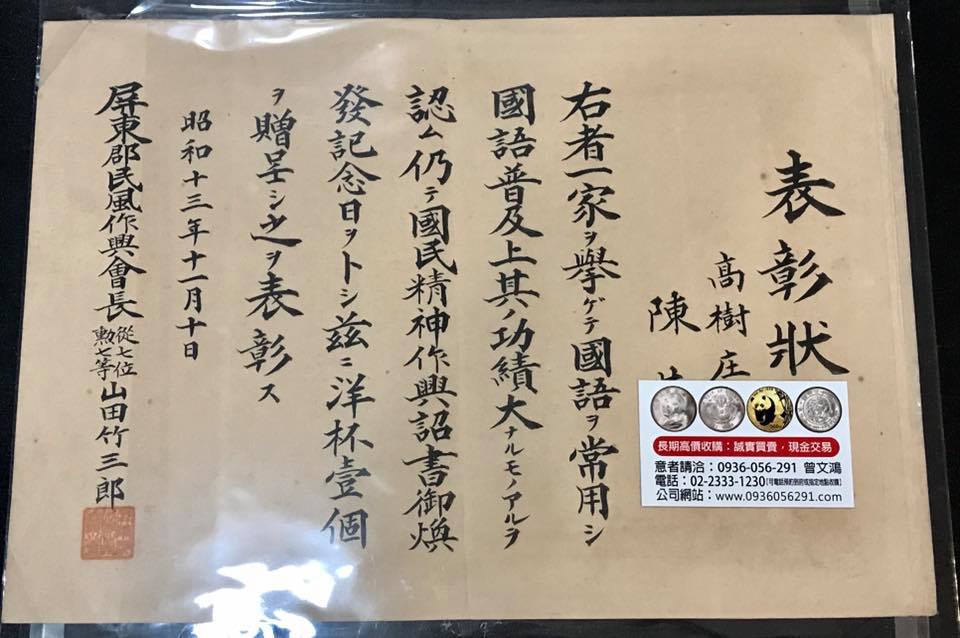 表彰狀
高樹庄
陳
右者一家ヲ擧ゲテ國語ヲ常用シ
國語普及上其ノ功績大ナルモノアルヲ
認ム仍テ國民精神作興詔書御煥
發記念日ヲトシ茲ニ洋杯壹個
ヲ贈呈シ之ヲ表彰ス
昭和十三年十一月十日
屏東郡民風作興會長 從七位 勲七等 山田竹三郎
長期高價收購：誠實買賣，現金交易
意者請洽：0936-056-291 曾文鴻
電話：02-2333-1230【可電話預約到府或指定地點收購】
公司網站：www.0936056291.com